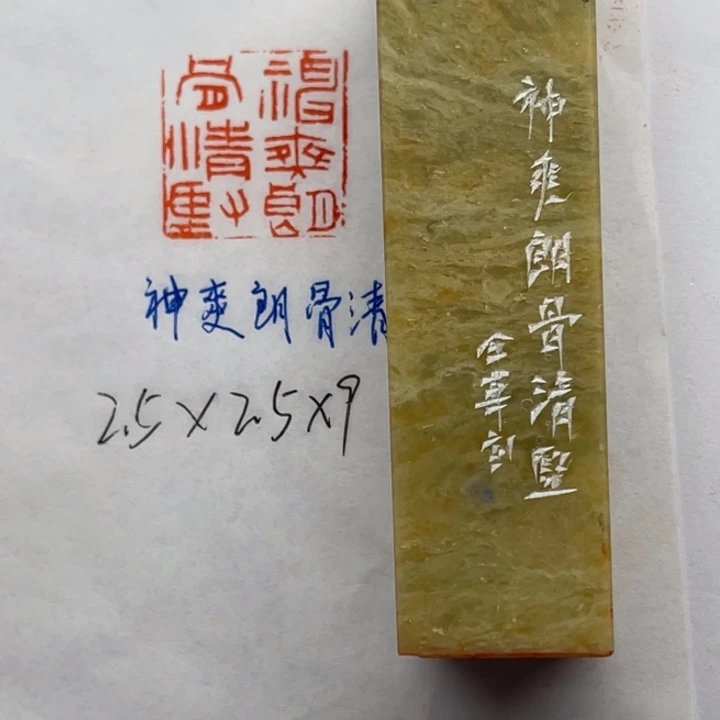 神爽朗
骨清堅
神爽朗骨清
2.5×2.5×9
神爽朗骨清堅
仝華刻